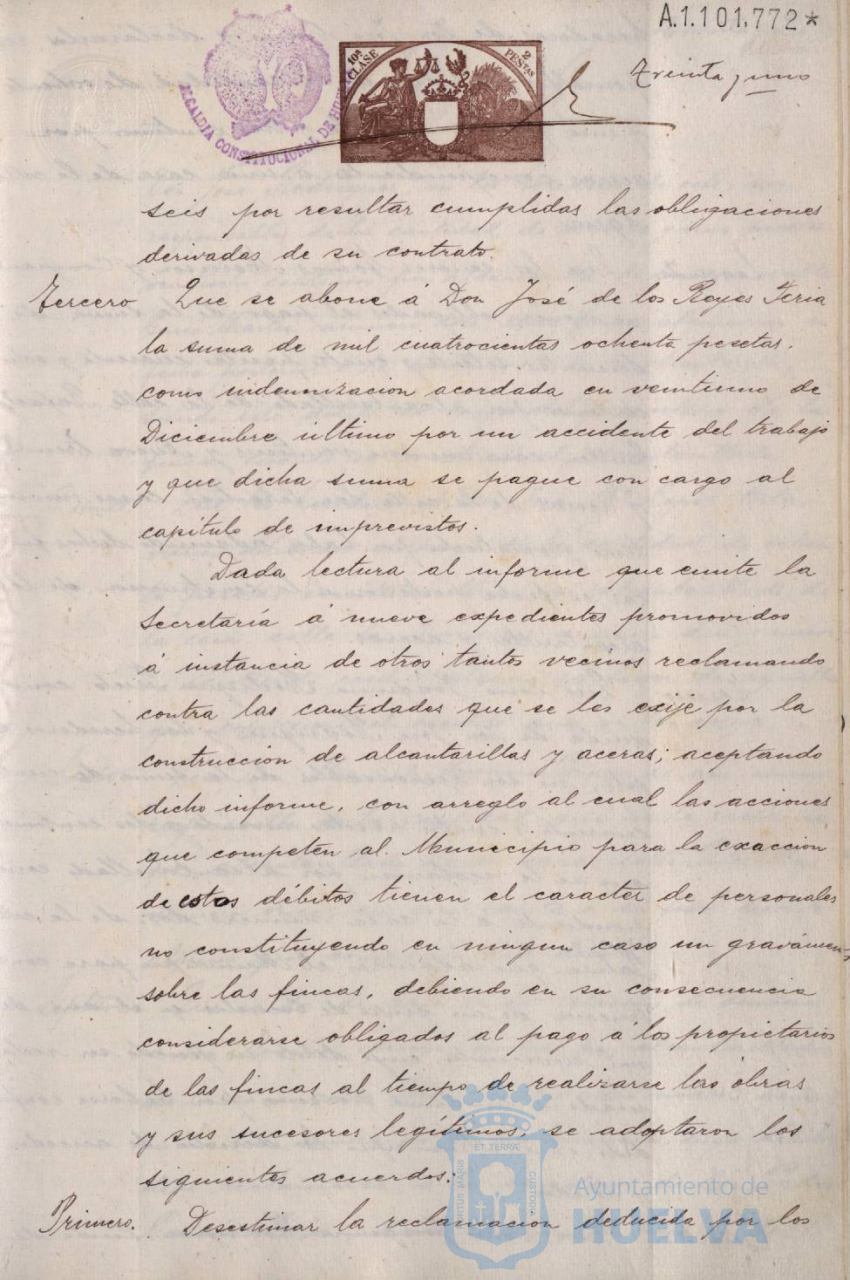 A.1.101.772*
10ª CLASE
2 PESETAS
ALCALDIA CONSTITUCIONAL DE HUELVA
Treinta y uno
seis por resultar cumplidas las obligaciones
derivadas de su contrato.
Tercero Que se abone á Don José de los Reyes Feria
la suma de mil cuatrocientas ochenta pesetas.
como indemnizacion acordada en veintiuno de
Diciembre último por un accidente del trabajo
y que dicha suma se pague con cargo al
capítulo de imprevistos.
Dada lectura al informe que emite la
Secretaría á nueve expedientes promovidos
á instancia de otros tantos vecinos reclamando
contra las cantidades que se les exije por la
construccion de alcantarillas y aceras; aceptando
dicho informe, con arreglo al cual las acciones
que competen al Municipio para la exaccion
de estos débitos tienen el caracter de personales
no constituyendo en ningun caso un gravámen
sobre las fincas, debiendo en su consecuencia
considerarse obligados al pago á los propietarios
de las fincas al tiempo de realizarse las obras
y sus sucesores legítimos, se adoptaron los
siguientes acuerdos:
Primero. Desestimar la reclamacion deducida por los
PORTUS MARIS ET TERRÆ CUSTODIA
Ayuntamiento de
HUELVA